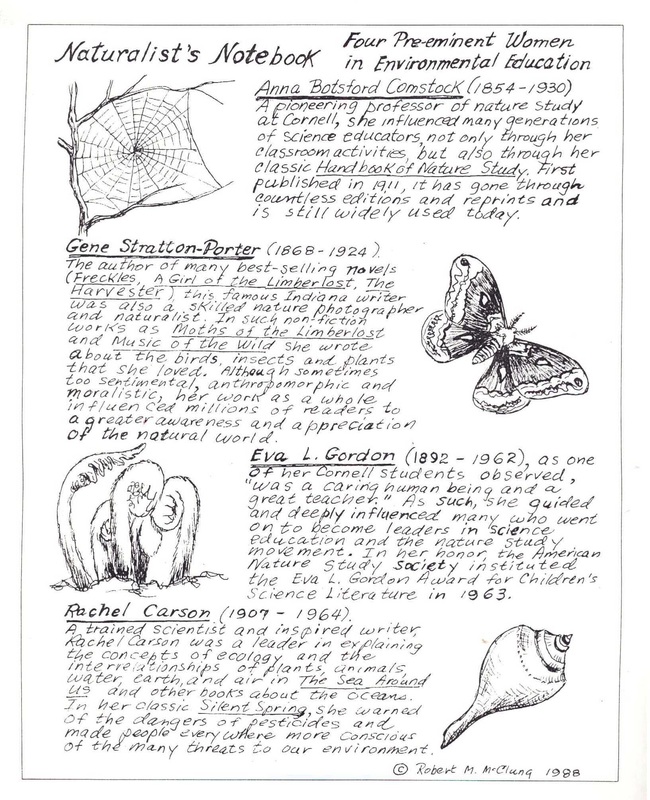 Naturalist's Notebook
Four Pre-eminent Women
in Environmental Education
Anna Botsford Comstock (1854-1930)
A pioneering professor of nature study
at Cornell, she influenced many generations
of science educators, not only through her
classroom activities, but also through her
classic Handbook of Nature Study. First
published in 1911, it has gone through
countless editions and reprints and
is still widely used today.
Gene Stratton-Porter (1868-1924)
The author of many best-selling novels
(Freckles, A Girl of the Limberlost, The
Harvester), this famous Indiana writer
was also a skilled nature photographer
and naturalist. In such non-fiction
works as Moths of the Limberlost
and Music of the Wild she wrote
about the birds, insects and plants
that she loved. Although sometimes
too sentimental, anthropomorphic and
moralistic, her work as a whole
influenced millions of readers to
a greater awareness and appreciation
of the natural world.
Eva L. Gordon (1892 - 1962), as one
of her Cornell students observed,
"was a caring human being and a
great teacher." As such, she guided
and deeply influenced many who went
on to become leaders in science
education and the nature study
movement. In her honor, the American
Nature Study Society instituted
the Eva L. Gordon Award for Children's
Science Literature in 1963.
Rachel Carson (1907 - 1964).
A trained scientist and inspired writer,
Rachel Carson was a leader in explaining
the concepts of ecology and the
interrelationships of plants, animals,
water, earth, and air in The Sea Around
Us and other books about the oceans.
In her classic Silent Spring, she warned
of the dangers of pesticides and
made people everywhere more conscious
of the many threats to our environment.
© Robert M. McClung 1988